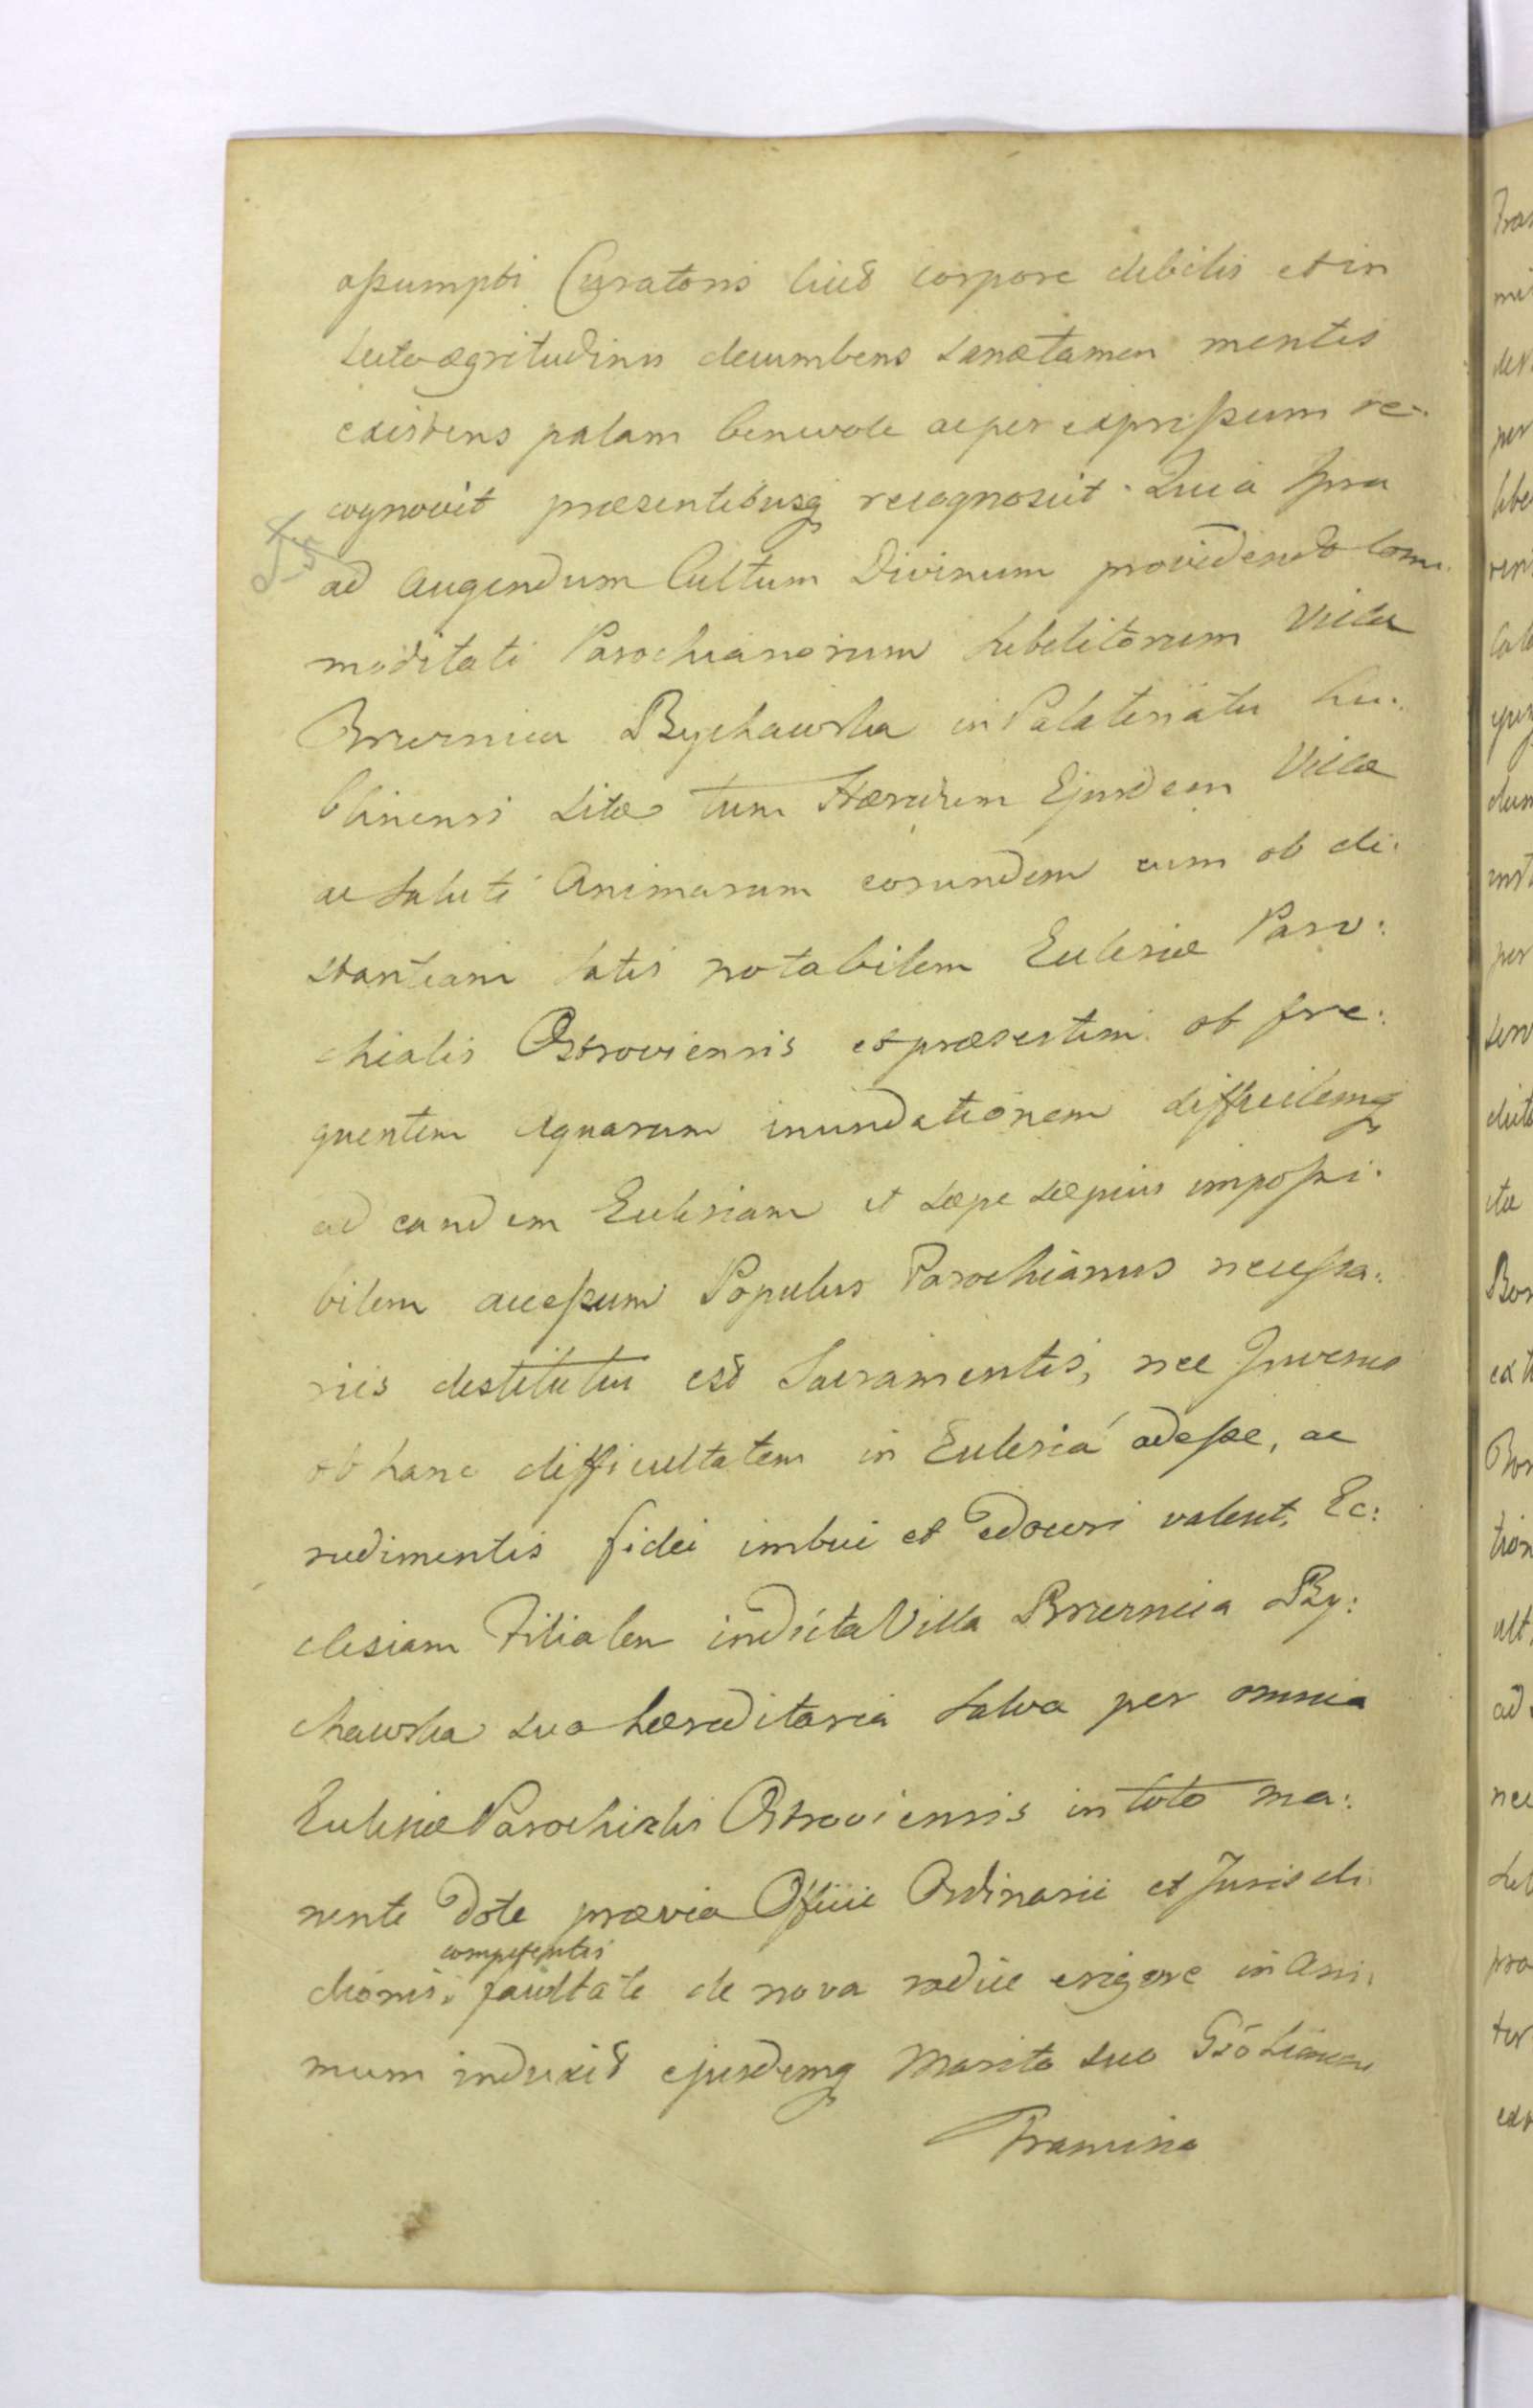 assumpti Curatoris licet corpore debilis et in
lecto ægritudinis decumbens sanæ tamen mentis
existens palam benevole ac per expressum re-
cognovit præsentibusq recognoscit. Quia Ipsa
ad augendum Cultum Divinum providendo com
moditati Parochianorum Subditorum Villæ
Brzeznica Bychawska in Palatinatu Lu:
blinensi Sitæ tum Hæredum Ejusdem Villæ
ac Saluti Animarum eorundem cum ob di:
stantiam satis notabilem Ecclesiæ Paro:
chialis Ostroviensis et præsertim ob fre:
quentem Aquarum inundationem difficilemq
ad eandem Ecclesiam et sæpe sæpius impossi:
bilem accessum Populus Parochianus necessa:
riis destitutus est Sacramentis, nec Juvenes
ob hanc difficultatem in Ecclesiá adesse, ac
rudimentis fidei imbui et edoceri valent. Ec:
clesiam Filialem in dicta Villa Brzeznica By:
chawska sua hæreditaria salva per omnia
Ecclesiæ Parochialis Ostroviensis in toto ma:
nente Dote prævia Officii Ordinarii et Jurisdi
ctionis competentis facultate de nova radice erigere in Ani:
mum induxit ejusdemq Marito suo